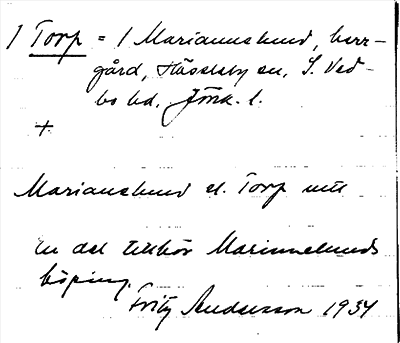 1 Torp = 1 Mariannelund, herr-
gård, Hässleby sn, S. Ved-
bo hd, Jönk. l.
+
Mariannelund el. Torp mtl
en del tillhör Mariannelunds
köping.
Fritz Andersson 1934